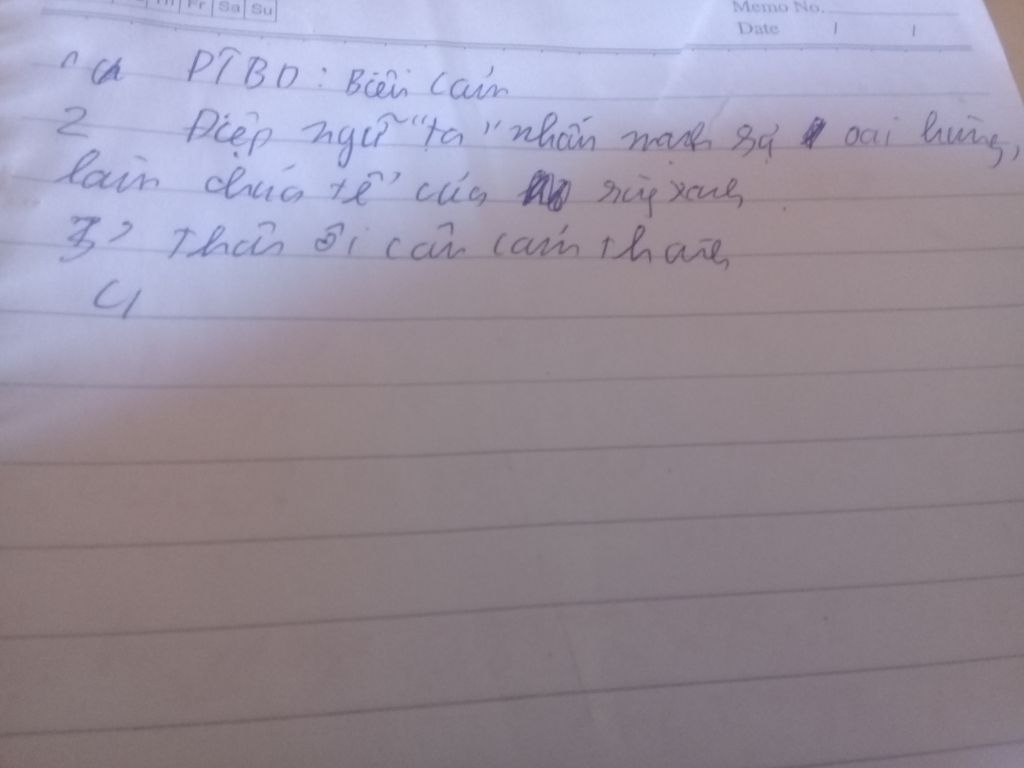 Fr Sa Su
Memo No.
Date / /
PTBD: Biểu cảm
2 Điệp ngữ "ta" nhấn mạnh sự oai hùng,
làm chúa tể của rừng xanh
3 Thán ôi câu cảm thán
4